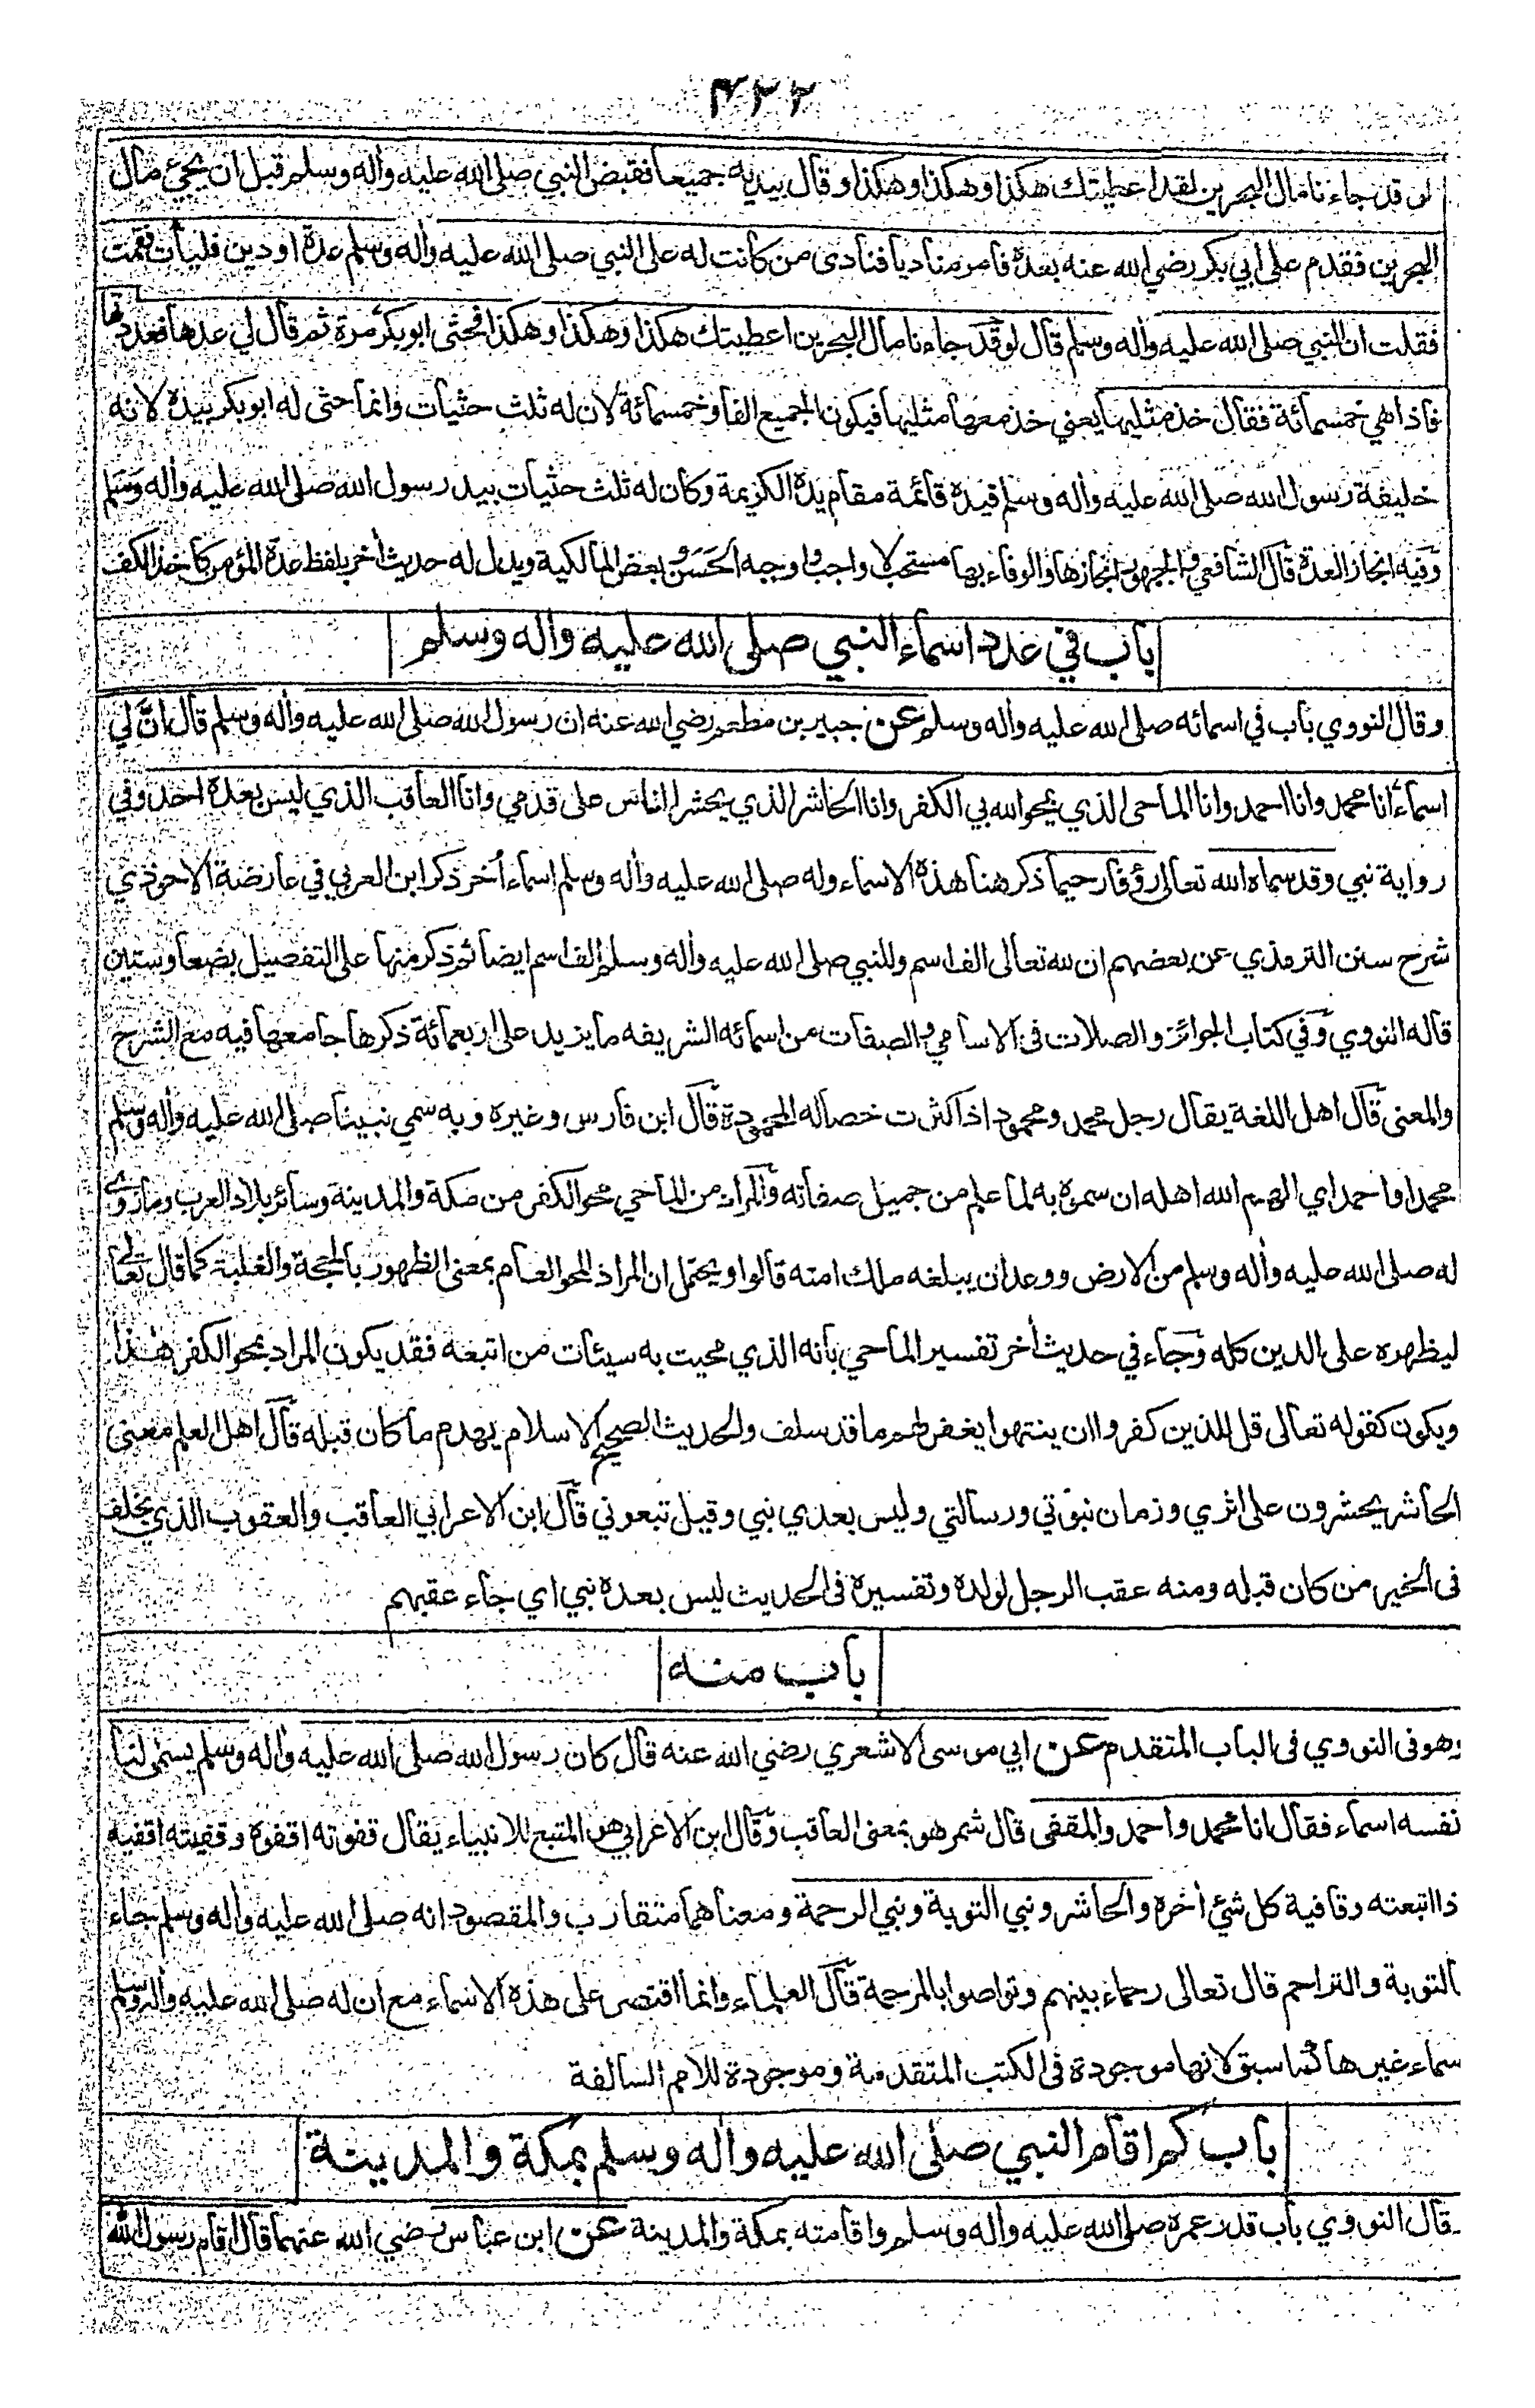 ٤٣٢
لو قد جاءنا مال البحرين لقد اعطيتك هكذا وهكذا وهكذا وقال بيديه جميعا فقبض النبي صلى الله عليه وأله وسلم قبل ان يجيء مال
البحرين فقدم على ابي بكر رضي الله عنه بعده فامر مناديا فنادى من كانت له على النبي صلى الله عليه وأله وسلم عدة او دين فليأت فقمت
فقلت ان النبي صلى الله عليه وأله وسلم قال لو قد جاءنا مال البحرين اعطيتك هكذا وهكذا وهكذا فحثى ابو بكر مرة ثم قال لي عدها فعددتها
فاذا هي خمسمائة فقال خذ مثليها يعني خذ معها مثليها فيكون الجميع الفا وخمسمائة لان له ثلث حثيات وانما حثى له ابو بكر بيده لانه
خليفة رسول الله صلى الله عليه وأله وسلم فيده قائمة مقام يده الكريمة وكان له ثلث حثيات بيد رسول الله صلى الله عليه وأله وسلم
وفيه انجاز العدة قال الشافعي والجمهور انجازها والوفاء بها مستحب لا واجب واوجبه الحسن وبعض المالكية ويدل له حديث أخر بلفظ عدة المؤمن كأخذ الكف
باب في عدد اسماء النبي صلى الله عليه وأله وسلم
وقال النووي باب في اسمائه صلى الله عليه وأله وسلم عن جبير بن مطعم رضي الله عنه ان رسول الله صلى الله عليه وأله وسلم قال ان لي
اسماء انا محمد وانا احمد وانا الماحي الذي يمحو الله بي الكفر وانا الحاشر الذي يحشر الناس على قدمي وانا العاقب الذي ليس بعده احد وفي
رواية نبي وقد سماه الله تعالى رؤفا رحيما ذكر هنا هذه الاسماء وله صلى الله عليه وأله وسلم اسماء أخر ذكر ابن العربي في عارضة الاحوذي
شرح سنن الترمذي عن بعضهم ان لله تعالى الف اسم وللنبي صلى الله عليه وأله وسلم الف اسم ايضا ثم ذكر منها على التفصيل بضعا وستين
قاله النووي وفي كتاب الجوائز والصلات في الاسامي والصفات من اسمائه الشريفه ما يزيد على اربعمائة ذكرها جامعها فيه مع الشرح
والمعنى قال اهل اللغة يقال رجل محمد ومحمود اذا كثرت خصاله المحمودة قال ابن فارس وغيره وبه سمي نبينا صلى الله عليه وأله وسلم
محمدا واحمد اي الهم الله اهله ان سموه به لما علم من جميل صفاته والمراد من الماحي محو الكفر من مكة والمدينة وسائر بلاد العرب وما زوى
له صلى الله عليه وأله وسلم من الارض ووعد ان يبلغه ملك امته قالوا ويحتمل ان المراد المحو العام بمعنى الظهور بالحجة والغلبة كما قال تعالى
ليظهره على الدين كله وجاء في حديث أخر تفسير الماحي بانه الذي محيت به سيئات من اتبعه فقد يكون المراد بمحو الكفر هذا
ويكون كقوله تعالى قل للذين كفروا ان ينتهوا يغفر لهم ما قد سلف والحديث الصحيح الاسلام يهدم ما كان قبله قال اهل العلم معنى
الحاشر يحشرون على اثري وزمان نبوتي ورسالتي وليس بعدي نبي وقيل تبعوني قال ابن الاعرابي العاقب والعقوب الذي يخلف
في الخير من كان قبله ومنه عقب الرجل لولده وتفسيره في الحديث ليس بعده نبي اي جاء عقبهم
باب منه
وهو في النووي في الباب المتقدم عن ابي موسى الاشعري رضي الله عنه قال كان رسول الله صلى الله عليه وأله وسلم يسمى لنا
نفسه اسماء فقال انا محمد واحمد والمقفى قال شمر هو بمعنى العاقب وقال ابن الاعرابي هو المتبع للانبياء يقال قفوته اقفوه وقفيته اقفيه
ذا اتبعته وقافية كل شئ أخره والحاشر ونبي التوبة ونبي الرحمة ومعناهما متقارب والمقصود انه صلى الله عليه وأله وسلم جاء
بالتوبة والتراحم قال تعالى رحماء بينهم وتواصوا بالمرحمة قال العلماء وانما اقتصر على هذه الاسماء مع ان له صلى الله عليه وأله وسلم
سماء غيرها كما سبق لانها موجودة في الكتب المتقدمة وموجودة للامم السالفة
باب كم اقام النبي صلى الله عليه وأله وسلم بمكة والمدينة
قال النووي باب قدر عمره صلى الله عليه وأله وسلم واقامته بمكة والمدينة عن ابن عباس رضي الله عنهما قال اقام رسول الله